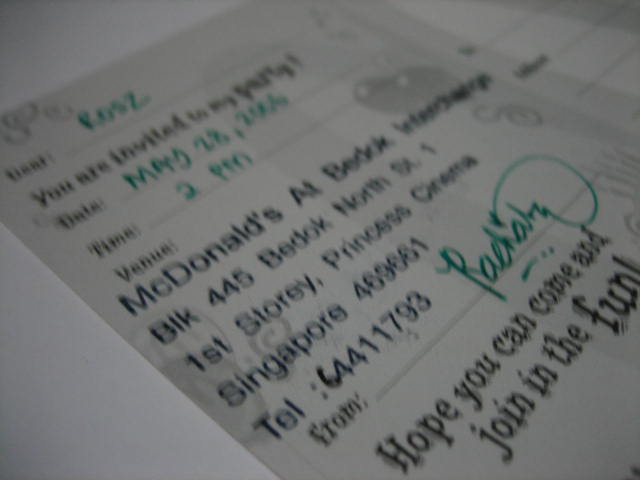 Dear: ROSZ
You are invited to my party!
Date: MAC 28, 2006
Time: 2 PM
Venue:
McDonald's At Bedok Interchange
Blk 445 Bedok North St. 1
1st Storey, Princess Cinema
Singapore 469661
Tel :64411793
from:
Hope you can come and
join in the fun!